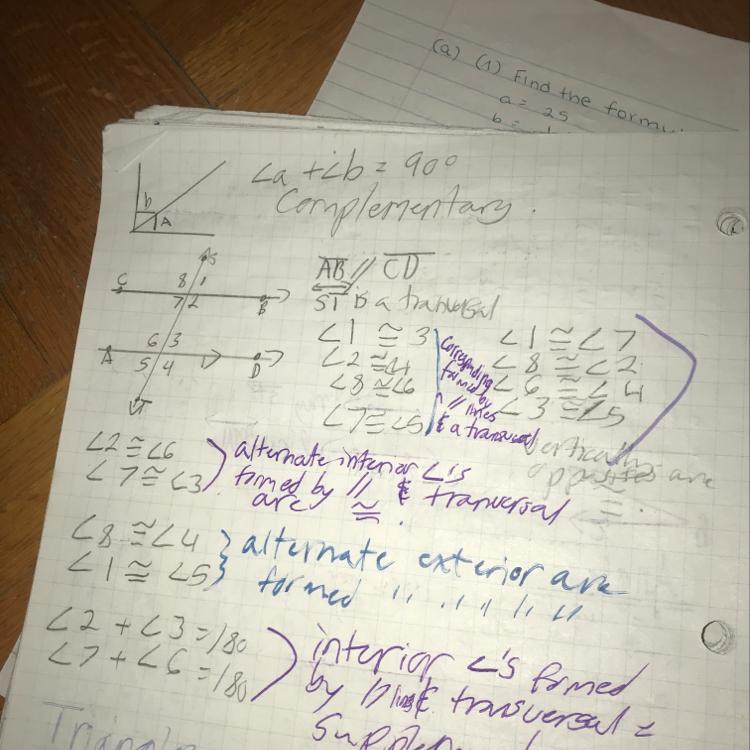 (a) (1) Find the formu
a = 25
b =
∠a + ∠b = 90°
Complementary.
b
A
S
C 8 1
7 2 B
6 3
A 5 4 D
T
AB // CD
ST is a tranversal
∠1 ≅ 3
∠2 ≅ 4
∠8 ≅ ∠6
∠7 ≅ ∠5
Corresponding
formed by
// lines
& a tranversal
∠1 ≅ ∠7
∠8 ≅ ∠2
∠6 ≅ ∠4
∠3 ≅ ∠5
vertically
opposites are
≅.
∠2 ≅ ∠6
∠7 ≅ ∠3
alternate interior ∠'s
formed by // & tranversal
are ≅.
∠8 ≅ ∠4
∠1 ≅ ∠5
alternate exterior are
formed " " " " "
∠2 + ∠3 = 180
∠7 + ∠6 = 180
interior ∠'s formed
by & transversal =